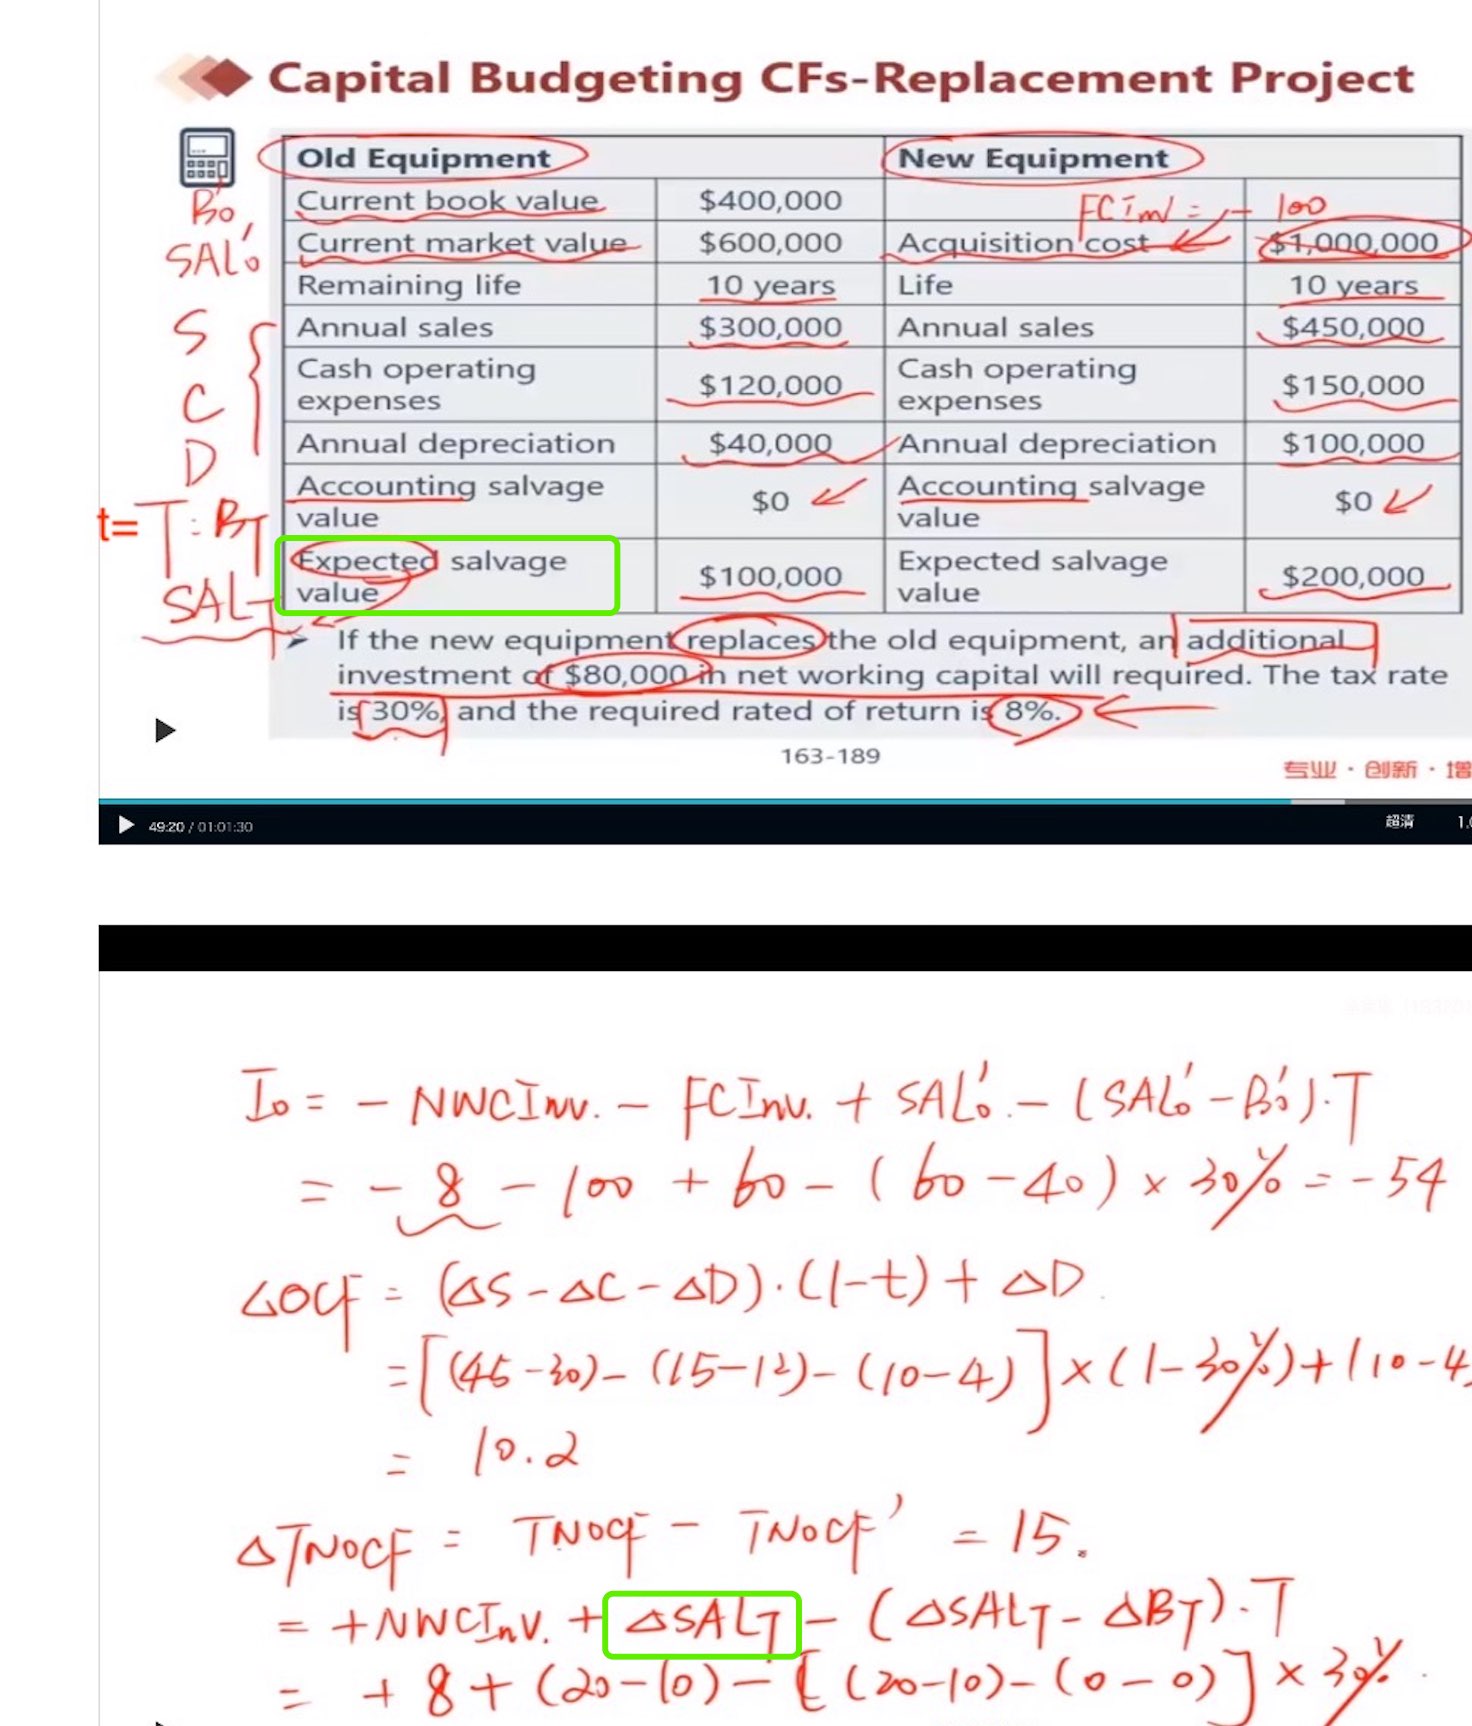 Capital Budgeting CFs-Replacement Project
Old Equipment New Equipment
Current book value $400,000
FCInv = - 100
B₀'
Current market value $600,000 Acquisition cost $1,000,000
SAL₀'
Remaining life 10 years Life 10 years
S
Annual sales $300,000 Annual sales $450,000
C
Cash operating expenses $120,000 Cash operating expenses $150,000
D
Annual depreciation $40,000 Annual depreciation $100,000
t= T: B_T
Accounting salvage value $0 Accounting salvage value $0
SAL_T
Expected salvage value $100,000 Expected salvage value $200,000
➤ If the new equipment replaces the old equipment, an additional
investment of $80,000 in net working capital will required. The tax rate
is 30%, and the required rated of return is 8%.
163-189
专业·创新·增
49:20 / 01:01:30 超清 1.
I₀ = - NWCInv. - FCInv. + SAL₀' - (SAL₀' - B₀')·T
= - 8 - 100 + 60 - (60-40) × 30% = -54
ΔOCF = (ΔS - ΔC - ΔD)·(1-t) + ΔD
= [(45-30) - (15-12) - (10-4)] × (1-30%) + (10-4
= 10.2
ΔTNOCF = TNOCF - TNOCF' = 15.
= +NWCInv. + ΔSAL_T - (ΔSAL_T - ΔB_T)·T
= + 8 + (20-10) - [(20-10) - (0-0)] × 30%